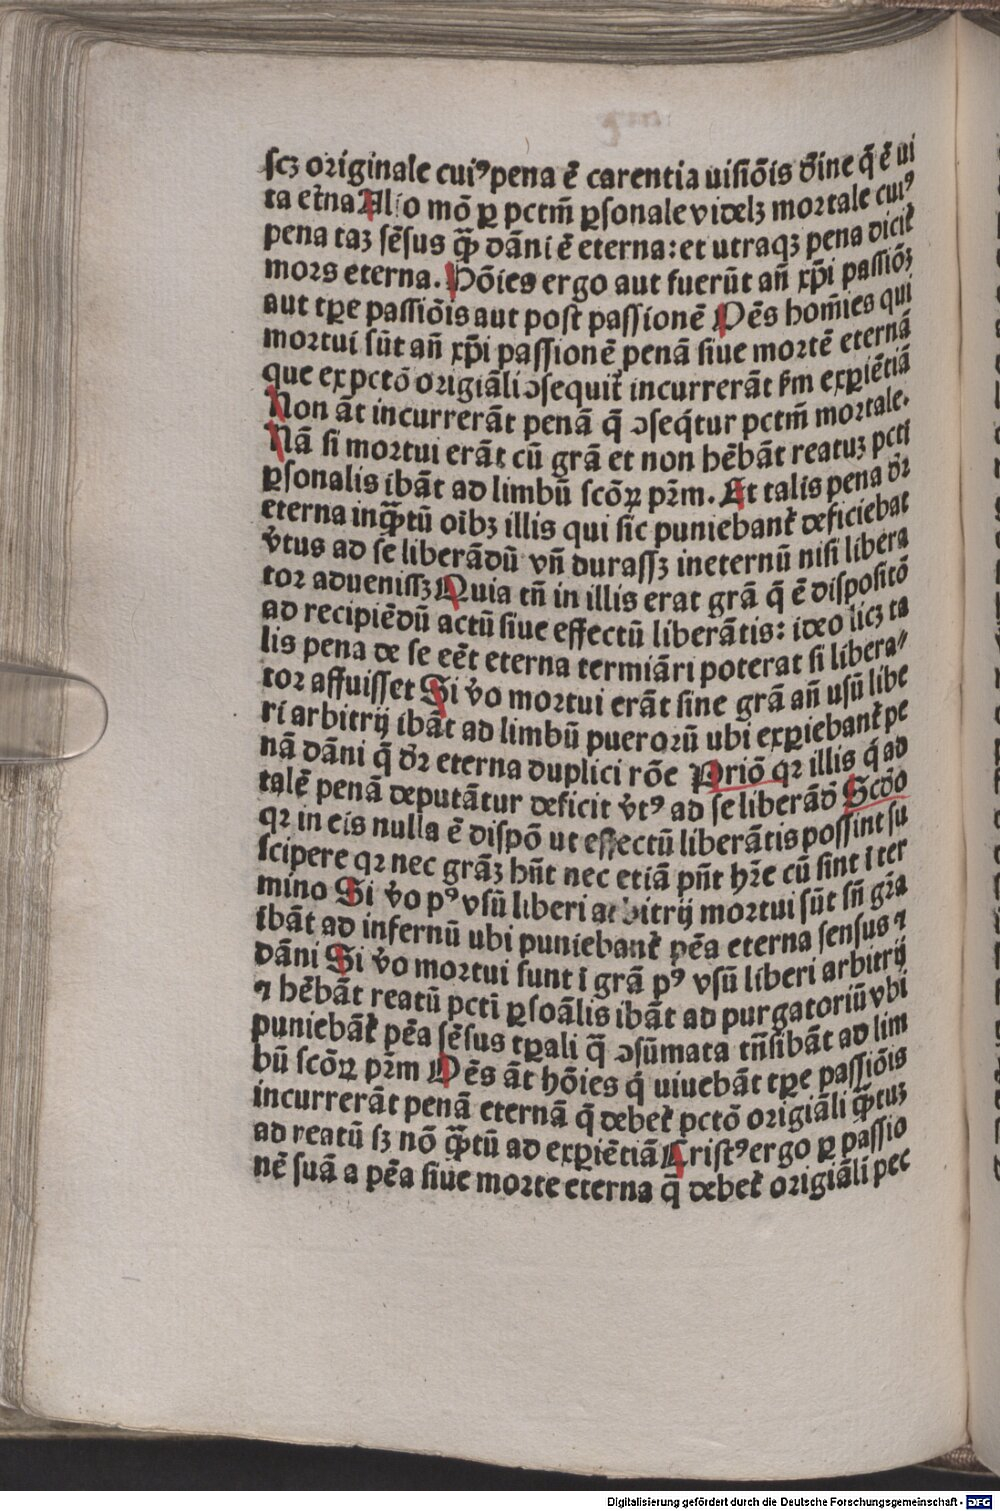 ſcꝫ originale cuiꝰ pena ē carentia uiſiōis dīne q̄ ē ui
ta et̄na Alio mō ꝑ pctm̄ ꝑſonale videlꝫ mortale cuiꝰ
pena taꝫ ſēſus q̄ꝫ dāni ē eterna: et utraqꝫ pena dicit᷑
mors eterna. Hōies ergo aut fuerūt an̄ xp̄i paſſiōꝫ
aut tꝑe paſſiōis aut poſt paſſionē Oēs homīes qui
mortui ſūt an̄ xp̄i paſſionē penā ſiue mortē eternā
que ex pctō origiāli ↄſequit᷑ incurrerāt ẜm exꝑiētiā
Non āt incurrerāt penā q̄ ↄſeq̄tur pctm̄ mortale.
Nā ſi mortui erāt cū grā et non hēbāt reatuꝫ pcti
ꝑſonalis ibāt ad limbū ſcōꝝ pr̄m. Et talis pena dr̄
eterna inq̄ꝫtū oibꝫ illis qui ſic puniebant᷑ deficiebat
v̄tus ad ſe liberādū vn̄ duraſſꝫ ineternū niſi libera
tor adueniſſꝫ Quia tn̄ in illis erat grā q̄ ē diſpoſitō
ad recipiēdū actū ſiue effectū liberātis: ideo licꝫ ta
lis pena de ſe eēt eterna termiāri poterat ſi libera⸗
tor affuiſſet Si v̄o mortui erāt ſine grā an̄ uſū libe
ri arbitrij ibāt ad limbū puerorū ubi exꝑiebant᷑ pe
nā dāni q̄ dr̄ eterna duplici rōe Priō qꝛ illis q̄ ad
talē penā deputātur deficit v̄tꝰ ad ſe liberād̄ Scdō
qꝛ in eis nulla ē diſpō ut effectū liberātis poſſint ſu
ſcipere qꝛ nec grāꝫ hn̄t nec etiā pn̄t hr̄e cū ſint ī ter
mino Si v̄o pꝰ vſū liberi arbitrij mortui ſūt ſn̄ gr̄a
ibāt ad infernū ubi puniebant᷑ pēa eterna ſenſus ⁊
dāni Si v̄o mortui ſunt ī grā pꝰ vſū liberi arbitrij
⁊ hēbāt reatū pcti ꝑſoālis ibāt ad purgatoriū vbi
puniebāt᷑ pēa ſēſus tꝑali q̄ ↄſūmata tn̄ſibāt ad lim
bū ſcōꝝ pr̄m Oēs āt hōies q̄ uiuebāt tꝑe paſſiōis
incurrerāt penā eternā q̄ debet᷑ pctō origiāli q̄ꝫtuꝫ
ad reatū ſꝫ nō q̄ꝫtū ad exꝑiētiā Criſtꝰ ergo ꝑ paſſio
nē ſuā a pēa ſiue morte eterna q̄ debet᷑ origiāli pec
Digitalisierung gefördert durch die Deutsche Forschungsgemeinschaft - DFG